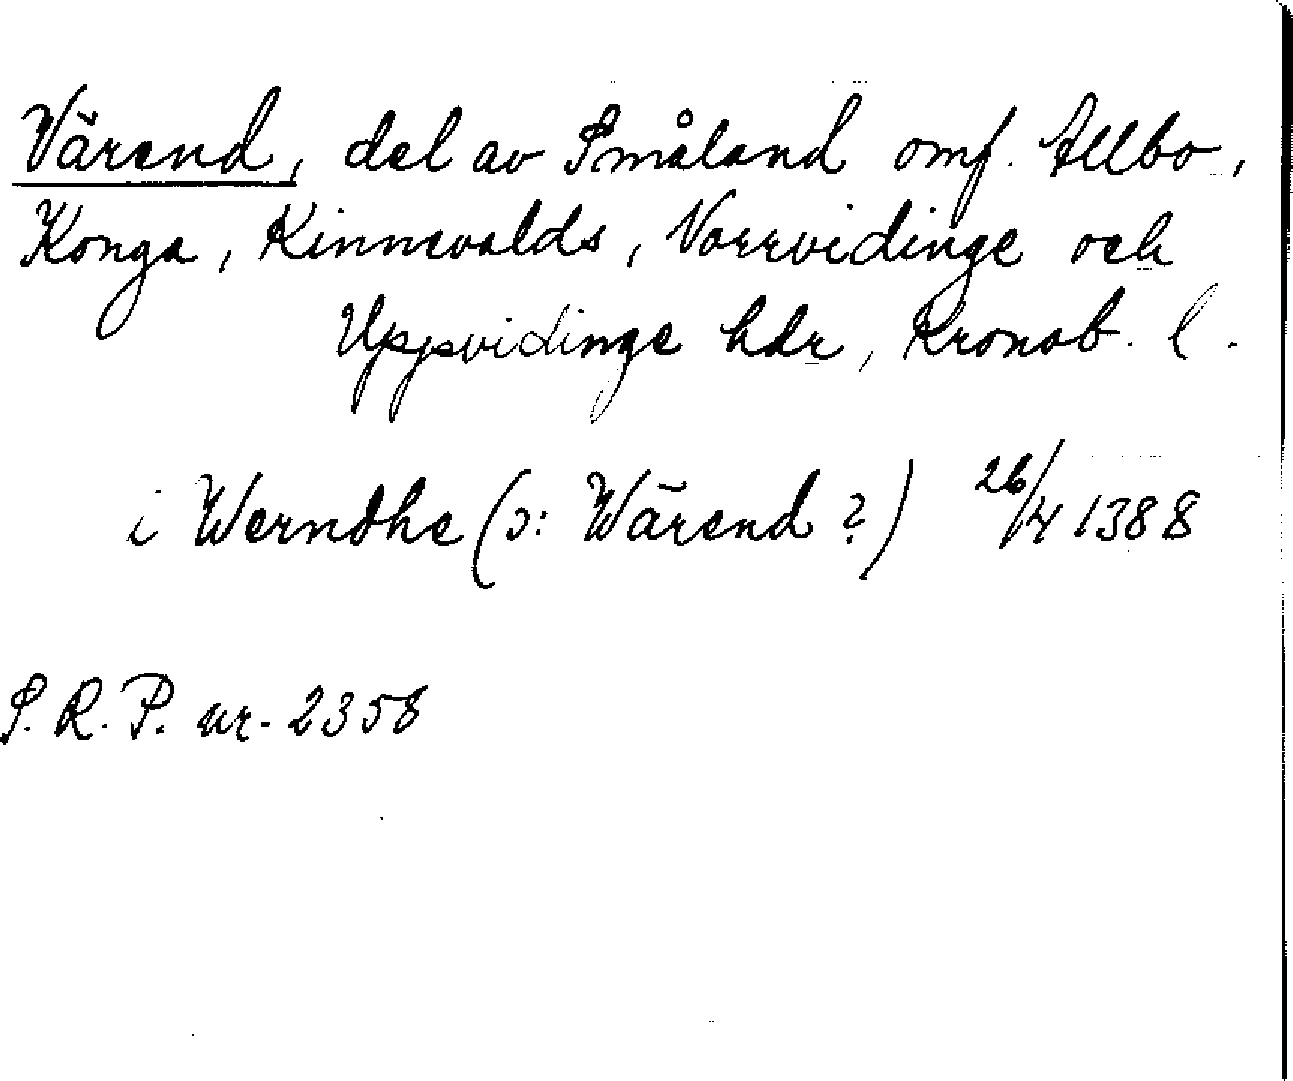 Värend, del av Småland omf. Allbo,
Konga, Kinnevalds, Norrvidinge och
Uppvidinge hdr, Kronob. l.
i Werndhe (ɔ: Wärend ?) 26/4 1388
S. R. P. nr. 2358